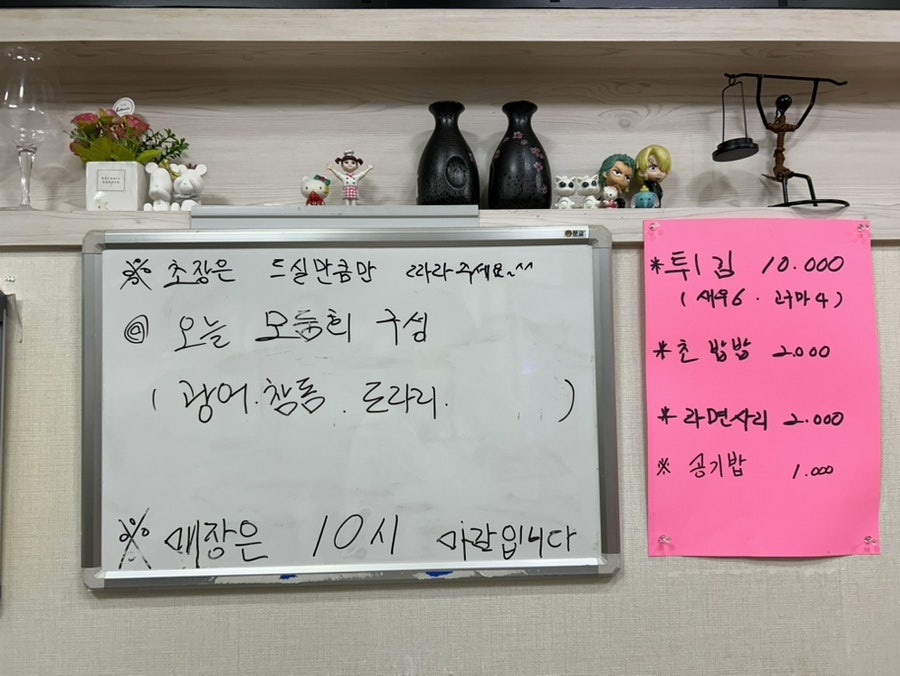 ※ 초장은 드실만큼만 따라주세요~^^
◎ 오늘 모둠회 구성
( 광어. 참돔. 도다리. )
※ 매장은 10시 마감입니다
*튀김 10.000
(새우6. 고구마4)
*초밥밥 2.000
*라면사리 2.000
※ 공기밥 1.000